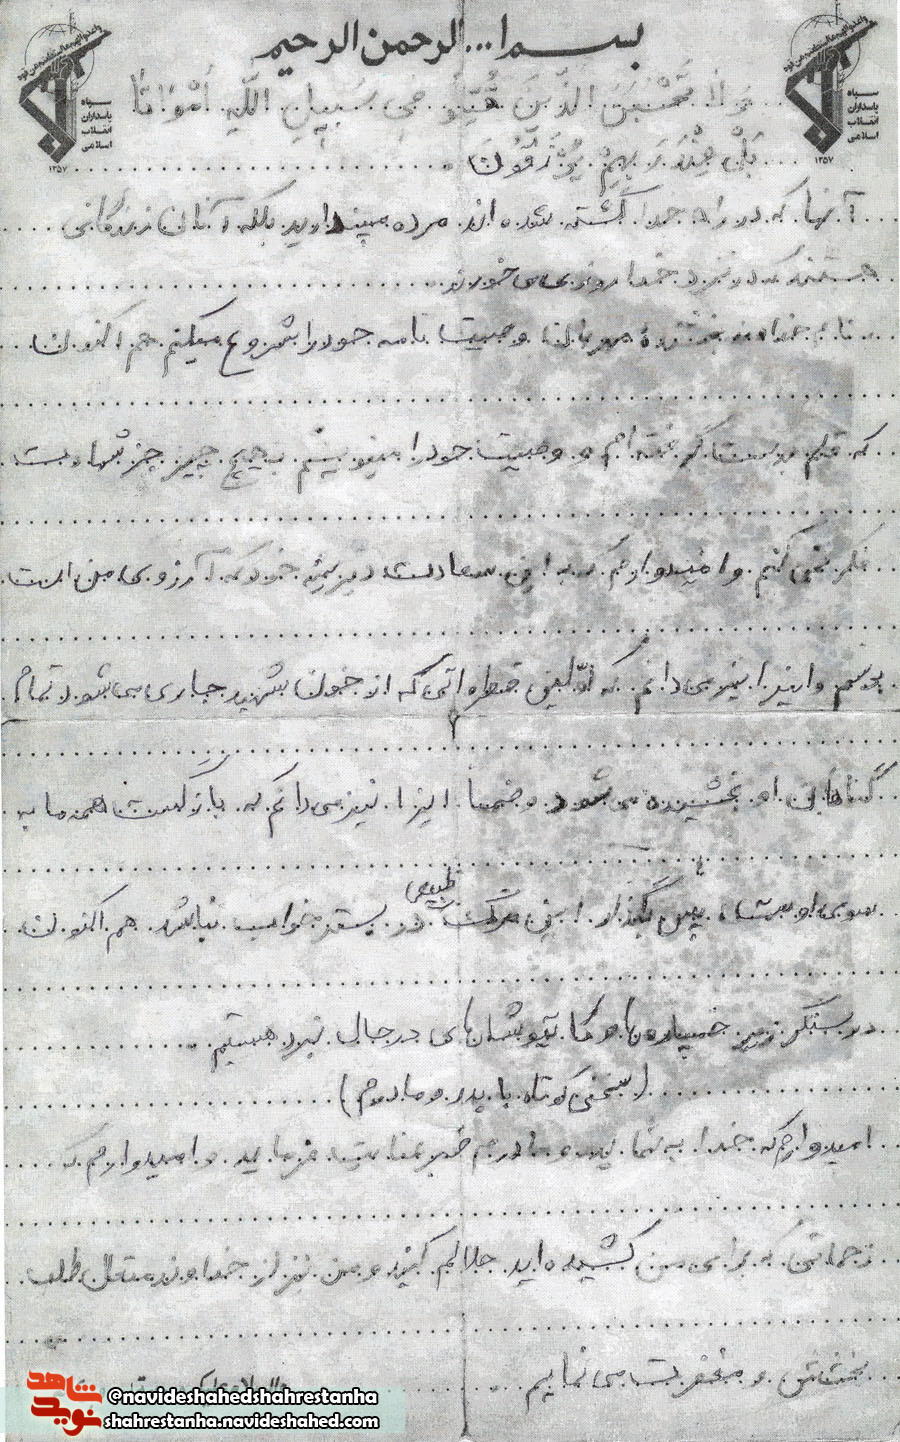 بسم ا... الرحمن الرحیم
سپاه
پاسداران
انقلاب
اسلامی
۱۳۵۷
سپاه
پاسداران
انقلاب
اسلامی
۱۳۵۷
وَلَا تَحْسَبَنَ الذّینَ قُتِلُو فی سَبیلِ اللّهِ أَمْوَاتاً
بَلْ عِنْدَ رَبِهِمْ یُرْزَقُونَ
آنها که در راه خدا کشته شده اند مرده مپندارید بلکه آنان زندگانی
هستند که در نزد خدا روزی می خورند
بنام خداوند بخشنده مهربان وصیت نامه خود را شروع میکنم هم اکنون
که قلم بدست گرفته ام و وصیت خود را مینویسم به هیچ چیز جز شهادت
فکر نمی کنم و امیدوارم که به این سعادت دیرینه خود که آرزوی من است
برسم و اینرا نیز می دانم که اوّلین قطره اتی که از خون شهید جاری می شود تمام
گناهان او بخشیده می شود و ضمناً اینرا نیز می دانم که بازگشت همه ما به
سوی اوست پس بگذار این مرگ طبیعی در بستر خواب نباشد هم اکنون
در سنگر زیر خمپاره ها و کاتیوشاهای در حال نبرد هستیم
(سخنی کوتاه با پدر و مادرم)
امیدوارم که خدا به شما پدر و مادرم صبر عنایت فرماید و امیدوارم که
زحماتی که برای من کشیده اید حلالم کنید و من نیز از خداوند متعال طلب
بخشش و مغفرت می نمایم
شاهد
نوید
@navideshahedshahrestanha
shahrestanha.navideshahed.com